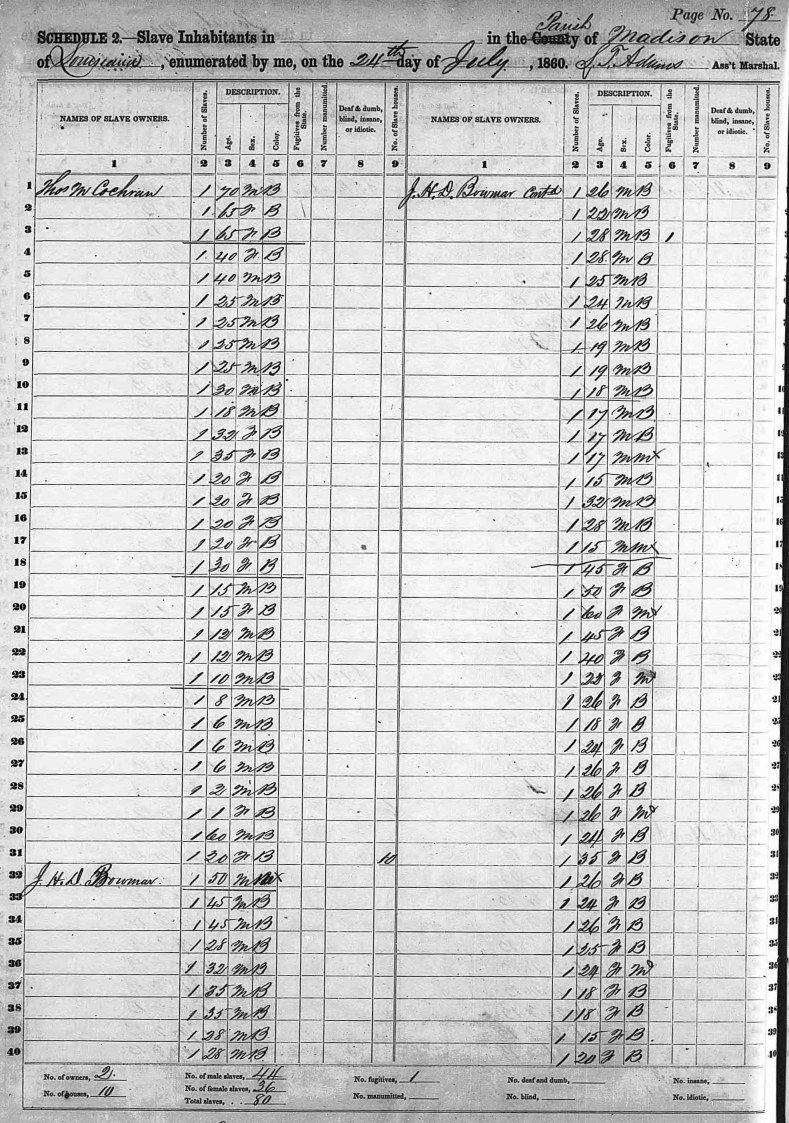 Page No. 78
SCHEDULE 2.—Slave Inhabitants in in the County Parish of Madison State
of Louisiana, enumerated by me, on the 24th day of July, 1860. J. T. Adams Ass't Marshal.
NAMES OF SLAVE OWNERS. Number of Slaves. DESCRIPTION. Age. Sex. Color. Fugitives from the State. Number manumitted. Deaf & dumb, blind, insane, or idiotic. No. of Slave houses. NAMES OF SLAVE OWNERS. Number of Slaves. DESCRIPTION. Age. Sex. Color. Fugitives from the State. Number manumitted. Deaf & dumb, blind, insane, or idiotic. No. of Slave houses.
1 2 3 4 5 6 7 8 9 1 2 3 4 5 6 7 8 9
1 Thos M Cochran 1 70 M B J. H. D. Bowmar Contd 1 26 M B 1
2 1 65 F B 1 22 M B 2
3 1 65 F B 1 28 M B 1 3
4 1 40 F B 1 28 M B 4
5 1 40 M B 1 25 M B 5
6 1 25 M B 1 24 M B 6
7 1 25 M B 1 26 M B 7
8 1 25 M B 1 19 M B 8
9 1 25 M B 1 19 M B 9
10 1 30 M B 1 18 M B 10
11 1 18 M B 1 17 M B 11
12 1 32 F B 1 17 M B 12
13 1 35 F B 1 17 M Mx 13
14 1 20 F B 1 15 M B 14
15 1 20 F B 1 32 M B 15
16 1 20 F B 1 28 M B 16
17 1 20 F B 1 15 M Mx 17
18 1 30 F B 1 45 F B 18
19 1 15 M B 1 50 F B 19
20 1 15 F B 1 60 F Mx 20
21 1 12 M B 1 45 F B 21
22 1 12 M B 1 40 F B 22
23 1 10 M B 1 22 F M 23
24 1 8 M B 1 26 F B 24
25 1 6 M B 1 18 F B 25
26 1 6 M B 1 24 F B 26
27 1 6 M B 1 26 F B 27
28 1 2 M B 1 26 F B 28
29 1 1 F B 1 26 F Mx 29
30 1 60 M B 1 24 F B 30
31 1 20 F B 10 1 35 F B 31
32 J. H. D. Bowmar 1 50 M Mx 1 26 F B 32
33 1 45 M B 1 24 F B 33
34 1 45 M B 1 26 F B 34
35 1 28 M B 1 25 F B 35
36 1 32 M B 1 24 F Mx 36
37 1 35 M B 1 18 F B 37
38 1 35 M B 1 18 F B 38
39 1 28 M B 1 15 F B 39
40 1 28 M B 1 20 F B 40
No. of owners, 2. No. of male slaves, 44 No. fugitives, 1 No. of deaf and dumb, No. of insane,
No. of houses, 10 No. of female slaves, 36 No. manumitted, No. blind, No. idiotic,
Total slaves, . . 80